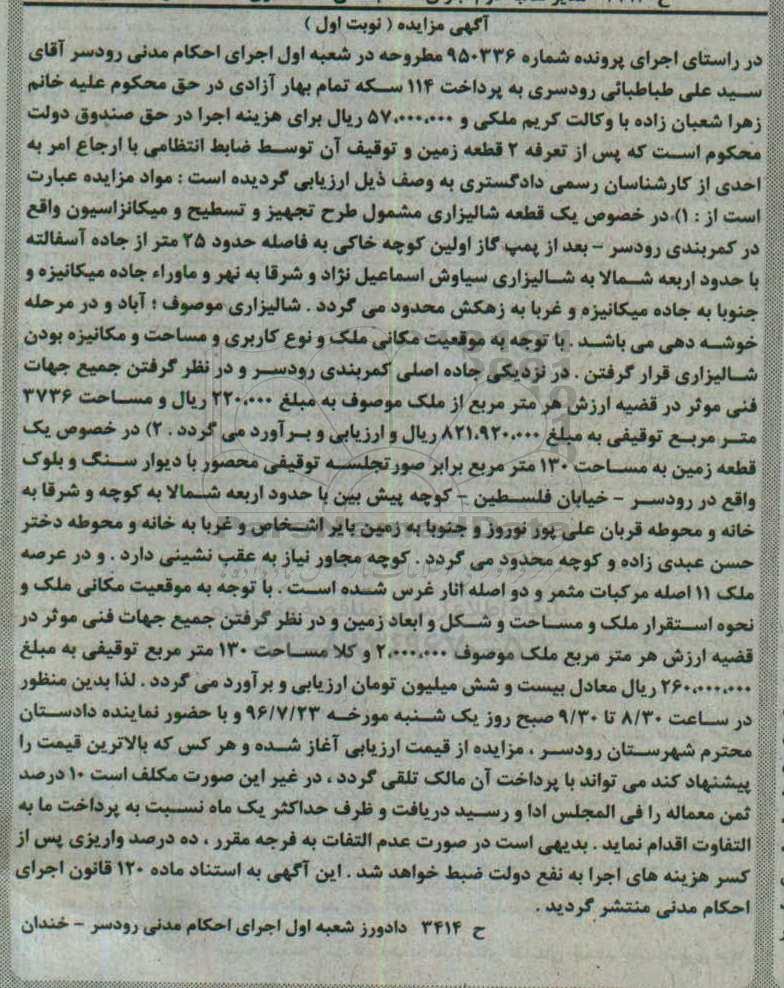 آگهی مزایده ( نوبت اول )
در راستای اجرای پرونده شماره ۹۵۰۳۳۶ مطروحه در شعبه اول اجرای احکام مدنی رودسر آقای
سید علی طباطبائی رودسری به پرداخت ۱۱۴ سکه تمام بهار آزادی در حق محکوم علیه خانم
زهرا شعبان زاده با وکالت کریم ملکی و ۵۷،۰۰۰،۰۰۰ ریال برای هزینه اجرا در حق صندوق دولت
محکوم است که پس از تعرفه ۲ قطعه زمین و توقیف آن توسط ضابط انتظامی با ارجاع امر به
احدی از کارشناسان رسمی دادگستری به وصف ذیل ارزیابی گردیده است : مواد مزایده عبارت
است از : ۱) در خصوص یک قطعه شالیزاری مشمول طرح تجهیز و تسطیح و میکانزاسیون واقع
در کمربندی رودسر – بعد از پمپ گاز اولین کوچه خاکی به فاصله حدود ۲۵ متر از جاده آسفالته
با حدود اربعه شمالا به شالیزاری سیاوش اسماعیل نژاد و شرقا به نهر و ماوراء جاده میکانیزه و
جنوبا به جاده میکانیزه و غربا به زهکش محدود می گردد . شالیزاری موصوف ؛ آباد و در مرحله
خوشه دهی می باشد . با توجه به موقعیت مکانی ملک و نوع کاربری و مساحت و مکانیزه بودن
شالیزاری قرار گرفتن . در نزدیکی جاده اصلی کمربندی رودسر و در نظر گرفتن جمیع جهات
فنی موثر در قضیه ارزش هر متر مربع از ملک موصوف به مبلغ ۲۲۰،۰۰۰ ریال و مساحت ۳۷۳۶
متر مربع توقیفی به مبلغ ۸۲۱،۹۲۰،۰۰۰ ریال و ارزیابی و برآورد می گردد . ۲) در خصوص یک
قطعه زمین به مساحت ۱۳۰ متر مربع برابر صورتجلسه توقیفی محصور با دیوار سنگ و بلوک
واقع در رودسر – خیابان فلسطین – کوچه پیش بین با حدود اربعه شمالا به کوچه و شرقا به
خانه و محوطه قربان علی پور نوروز و جنوبا به زمین بایر اشخاص و غربا به خانه و محوطه دختر
حسن عبدی زاده و کوچه محدود می گردد . کوچه مجاور نیاز به عقب نشینی دارد . و در عرصه
ملک ۱۱ اصله مرکبات مثمر و دو اصله انار غرس شده است . با توجه به موقعیت مکانی ملک و
نحوه استقرار ملک و مساحت و شکل و ابعاد زمین و در نظر گرفتن جمیع جهات فنی موثر در
قضیه ارزش هر متر مربع ملک موصوف ۲،۰۰۰،۰۰۰ و کلا مساحت ۱۳۰ متر مربع توقیفی به مبلغ
۲۶۰،۰۰۰،۰۰۰ ریال معادل بیست و شش میلیون تومان ارزیابی و برآورد می گردد . لذا بدین منظور
در ساعت ۸/۳۰ تا ۹/۳۰ صبح روز یک شنبه مورخه ۹۶/۷/۲۳ و با حضور نماینده دادستان
محترم شهرستان رودسر ، مزایده از قیمت ارزیابی آغاز شده و هر کس که بالاترین قیمت را
پیشنهاد کند می تواند با پرداخت آن مالک تلقی گردد ، در غیر این صورت مکلف است ۱۰ درصد
ثمن معماله را فی المجلس ادا و رسید دریافت و ظرف حداکثر یک ماه نسبت به پرداخت ما به
التفاوت اقدام نماید . بدیهی است در صورت عدم التفات به فرجه مقرر ، ده درصد واریزی پس از
کسر هزینه های اجرا به نفع دولت ضبط خواهد شد . این آگهی به استناد ماده ۱۲۰ قانون اجرای
احکام مدنی منتشر گردید .
ح ۳۴۱۴ دادورز شعبه اول اجرای احکام مدنی رودسر – خندان